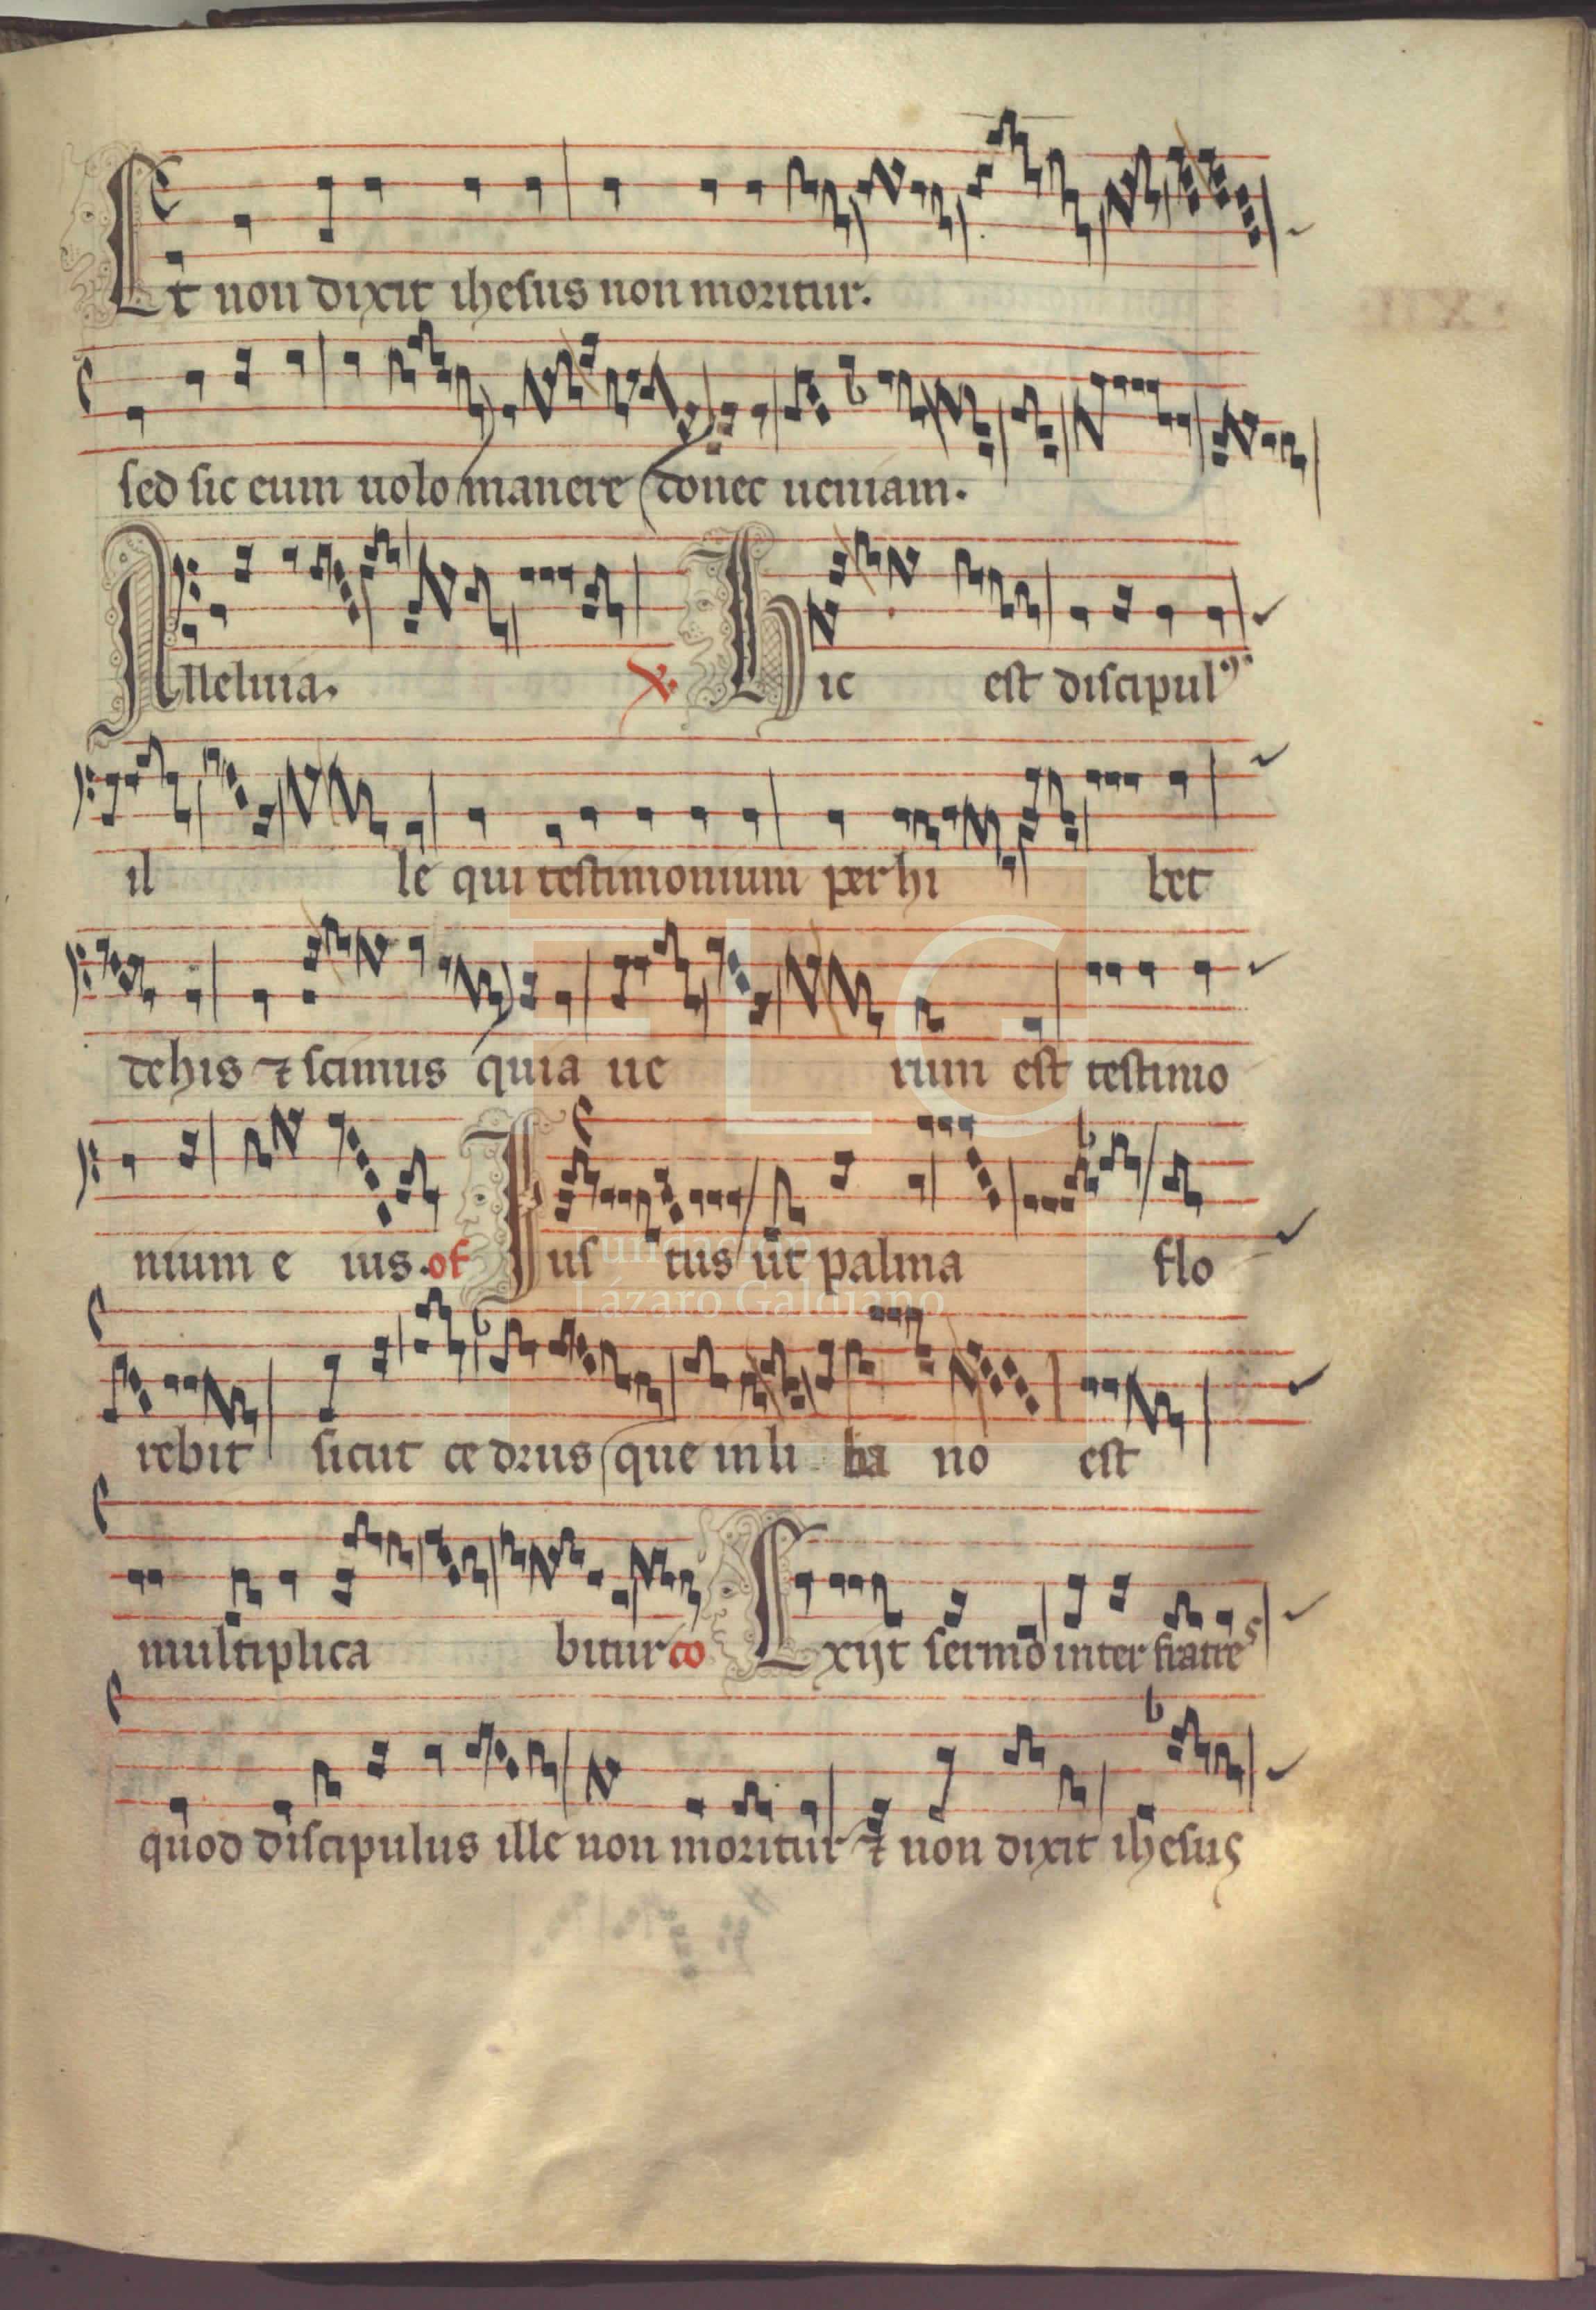 Et non dixit ihesus non moritur.
sed sic eum uolo manere donec ueniam.
Alleluia. ꝟ. Hic est discipulꝰ
il le qui testimonium perhi bet
dehis ⁊ scimus quia ue rum est testimo
nium e ius. of Ius tus ut palma flo
rebit sicut ce drus que in li ba no est
multiplica bitur co Exijt sermo inter fratres
quod discipulus ille non moritur ⁊ non dixit ihesus
FLG
Fundación
Lázaro Galdiano